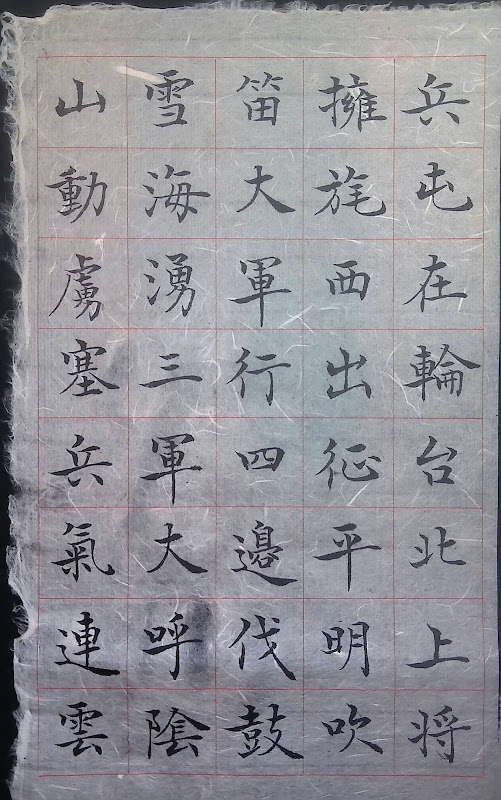 兵屯在輪台北上将
擁旄西出征平明吹
笛大軍行四邊伐鼓
雪海湧三軍大呼陰
山動虜塞兵氣連雲